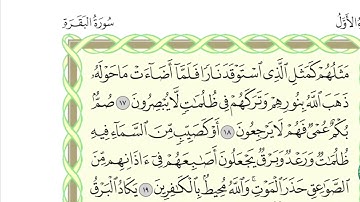 سُورَةُ البَقَرَةِ
مَثَلُهُمْ كَمَثَلِ ٱلَّذِى ٱسْتَوْقَدَ نَارًا فَلَمَّآ أَضَآءَتْ مَا حَوْلَهُۥ
ذَهَبَ ٱللَّهُ بِنُورِهِمْ وَتَرَكَهُمْ فِى ظُلُمَٰتٍ لَّا يُبْصِرُونَ ١٧ صُمٌّۢ
بُكْمٌ عُمْىٌ فَهُمْ لَا يَرْجِعُونَ ١٨ أَوْ كَصَيِّبٍ مِّنَ ٱلسَّمَآءِ فِيهِ
ظُلُمَٰتٌ وَرَعْدٌ وَبَرْقٌ يَجْعَلُونَ أَصَٰبِعَهُمْ فِىٓ ءَاذَانِهِم مِّنَ
ٱلصَّوَٰعِقِ حَذَرَ ٱلْمَوْتِ ۚ وَٱللَّهُ مُحِيطٌۢ بِٱلْكَٰفِرِينَ ١٩ يَكَادُ ٱلْبَرْقُ